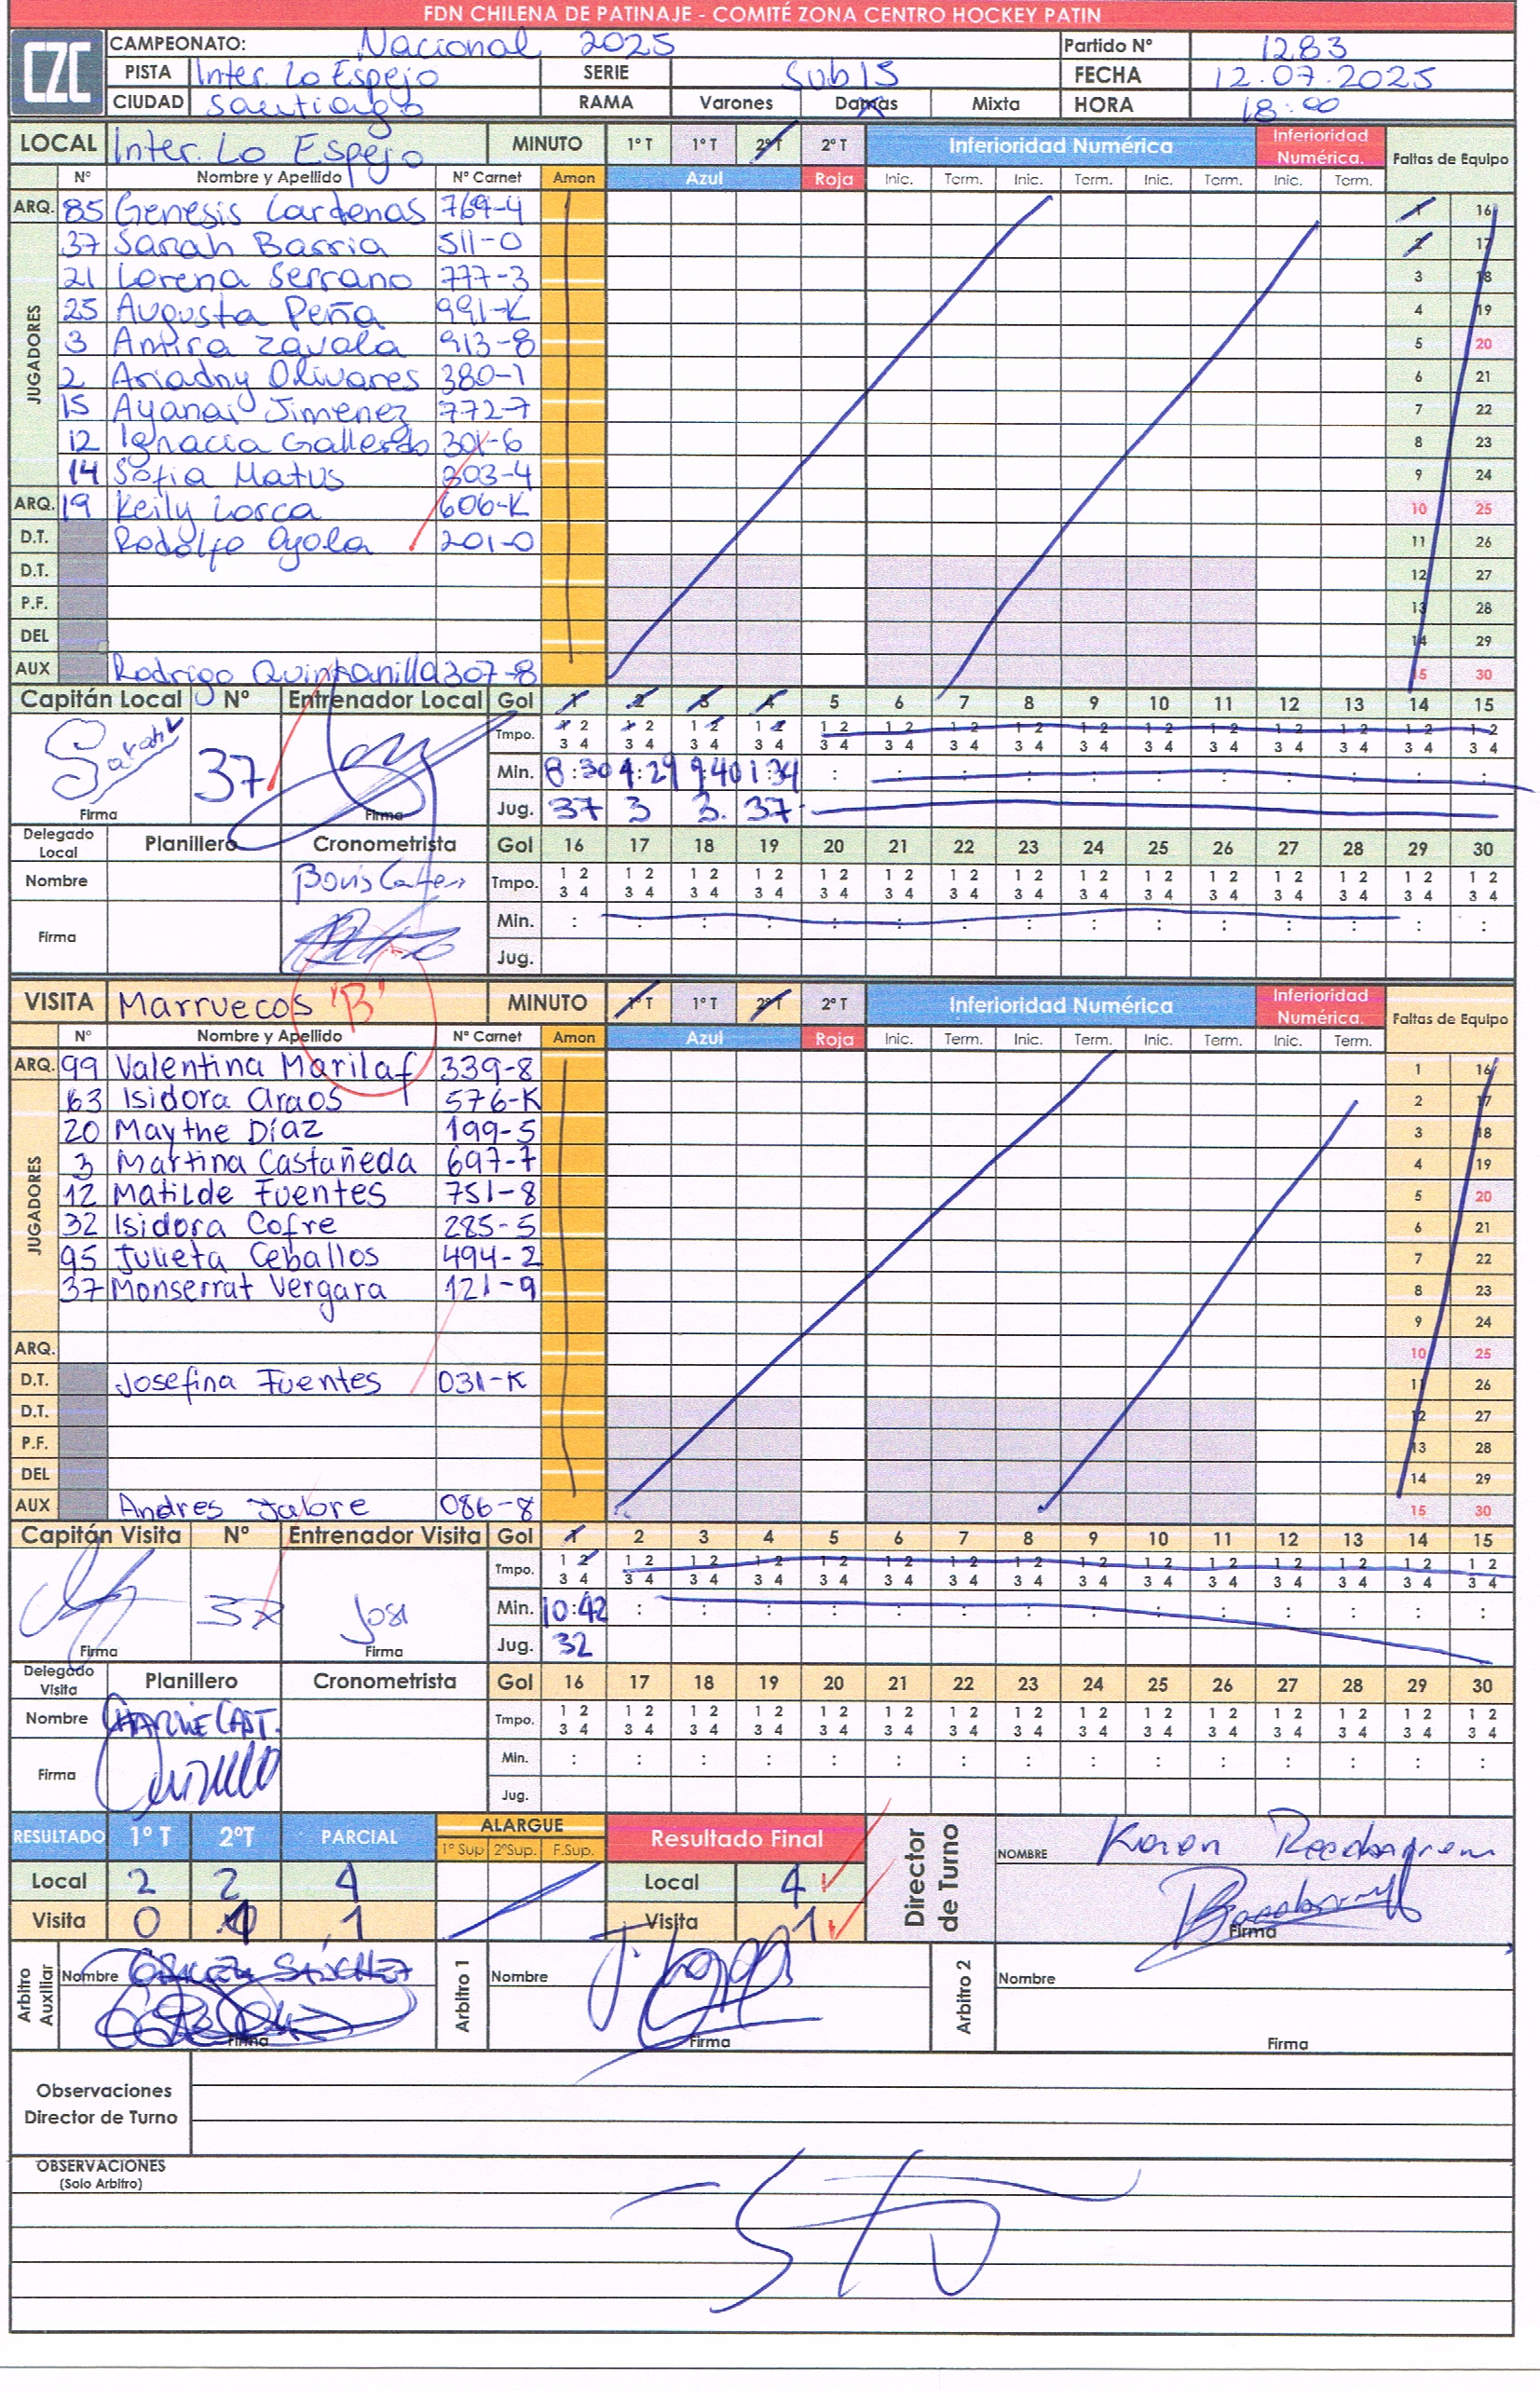 FDN CHILENA DE PATINAJE - COMITÉ ZONA CENTRO HOCKEY PATIN
CZC
CAMPEONATO: Nacional 2025 Partido Nº 1283
PISTA Inter. Lo Espejo SERIE Sub15 FECHA 12.07.2025
CIUDAD Santiago RAMA Varones Damas Mixta HORA 18:00
LOCAL Inter. Lo Espejo MINUTO 1º T 1º T 2º T 2º T Inferioridad Numérica Inferioridad Numérica. Faltas de Equipo
Nº Nombre y Apellido Nº Carnet Amon Azul Roja Inic. Term. Inic. Term. Inic. Term. Inic. Term.
ARQ. 85 Genesis Cardenas 769-4 1 16
JUGADORES
37 Sarah Barria 511-0 2 17
21 Lorena Serrano 777-3 3 18
25 Augusta Peña 991-K 4 19
3 Amira Zavala 913-8 5 20
2 Ariadny Olivares 380-1 6 21
15 Ayanai Jimenez 772-7 7 22
12 Ignacia Gallardo 301-6 8 23
14 Sofia Matus 303-4 9 24
ARQ. 19 Keily Lorca 606-K 10 25
D.T. Rodolfo Ayala 201-0 11 26
D.T. 12 27
P.F. 13 28
DEL 14 29
AUX Rodrigo Quintanilla 307-8 15 30
Capitán Local Nº Entrenador Local Gol 1 2 3 4 5 6 7 8 9 10 11 12 13 14 15
Sarah 37 Tmpo. 1 2 1 2 1 2 1 2 1 2 1 2 1 2 1 2 1 2 1 2 1 2 1 2 1 2 1 2 1 2
3 4 3 4 3 4 3 4 3 4 3 4 3 4 3 4 3 4 3 4 3 4 3 4 3 4 3 4 3 4
Min. 8:30 4:29 9:40 1:34 : : : : : : : : : : :
Firma Firma Jug. 37 3 3. 37
Delegado Local Planillero Cronometrista Gol 16 17 18 19 20 21 22 23 24 25 26 27 28 29 30
Nombre Boris Tmpo. 1 2 1 2 1 2 1 2 1 2 1 2 1 2 1 2 1 2 1 2 1 2 1 2 1 2 1 2 1 2
3 4 3 4 3 4 3 4 3 4 3 4 3 4 3 4 3 4 3 4 3 4 3 4 3 4 3 4 3 4
Firma Min. : : : : : : : : : : : : : : :
Jug.
VISITA Marruecos "B" MINUTO 1º T 1º T 2º T 2º T Inferioridad Numérica Inferioridad Numérica. Faltas de Equipo
Nº Nombre y Apellido Nº Carnet Amon Azul Roja Inic. Term. Inic. Term. Inic. Term. Inic. Term.
ARQ. 99 Valentina Marilaf 339-8 1 16
JUGADORES
63 Isidora Araos 576-K 2 17
20 Maythe Díaz 199-5 3 18
3 Martina Castañeda 697-7 4 19
12 Matilde Fuentes 751-8 5 20
32 Isidora Cofre 285-5 6 21
95 Julieta Ceballos 494-2 7 22
37 Monserrat Vergara 121-9 8 23
9 24
ARQ. 10 25
D.T. Josefina Fuentes 031-K 11 26
D.T. 12 27
P.F. 13 28
DEL 14 29
AUX Andres Jalore 086-8 15 30
Capitán Visita Nº Entrenador Visita Gol 1 2 3 4 5 6 7 8 9 10 11 12 13 14 15
37 Josi Tmpo. 1 2 1 2 1 2 1 2 1 2 1 2 1 2 1 2 1 2 1 2 1 2 1 2 1 2 1 2 1 2
3 4 3 4 3 4 3 4 3 4 3 4 3 4 3 4 3 4 3 4 3 4 3 4 3 4 3 4 3 4
Min. 10:42 : : : : : : : : : : : : : :
Firma Firma Jug. 32
Delegado Visita Planillero Cronometrista Gol 16 17 18 19 20 21 22 23 24 25 26 27 28 29 30
Nombre CHARLIE CAST. Tmpo. 1 2 1 2 1 2 1 2 1 2 1 2 1 2 1 2 1 2 1 2 1 2 1 2 1 2 1 2 1 2
3 4 3 4 3 4 3 4 3 4 3 4 3 4 3 4 3 4 3 4 3 4 3 4 3 4 3 4 3 4
Firma Min. : : : : : : : : : : : : : : :
Jug.
RESULTADO 1º T 2ºT PARCIAL ALARGUE Resultado Final Director de Turno NOMBRE Karen
1º Sup 2ºSup. F.Sup.
Local 2 2 4 Local 4
Visita 0 1 1 Visita 1 Firma
Arbitro Auxiliar Nombre SANCHEZ Arbitro 1 Nombre Arbitro 2 Nombre
Firma Firma Firma
Observaciones
Director de Turno
OBSERVACIONES
(Solo Arbitro)